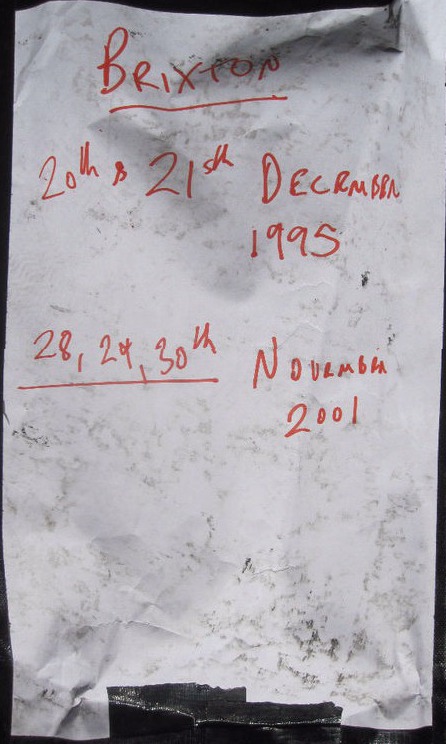 BRIXTON
20th & 21st DECEMBER
1995
28, 29, 30th NOVEMBER
2001